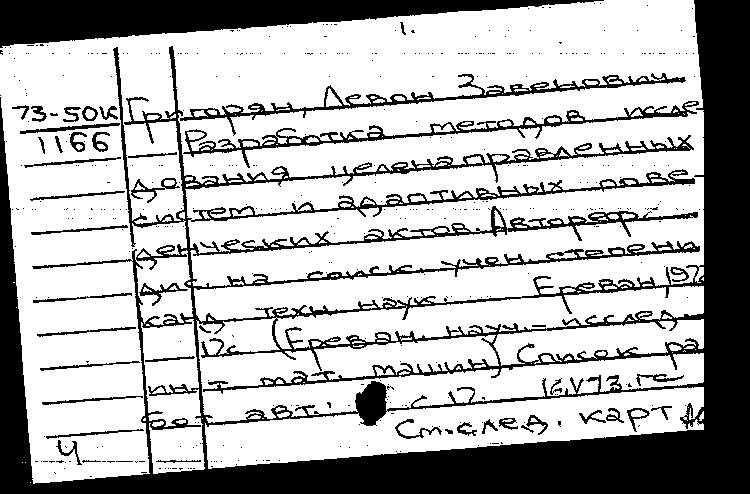 1.
73-50к Григорян, Левон Завенович
1166 Разработка методов иссле-
дования целенаправленных
систем и адаптивных пове-
денческих актов. Автореф.
дис. на соиск. учен. степени
канд. техн. наук. Ереван, 197
17с (Ереван. науч.-исслед.
ин-т мат. машин). Список ра
бот авт.: с 17. 16.V73.гс
Ч См.след. карт